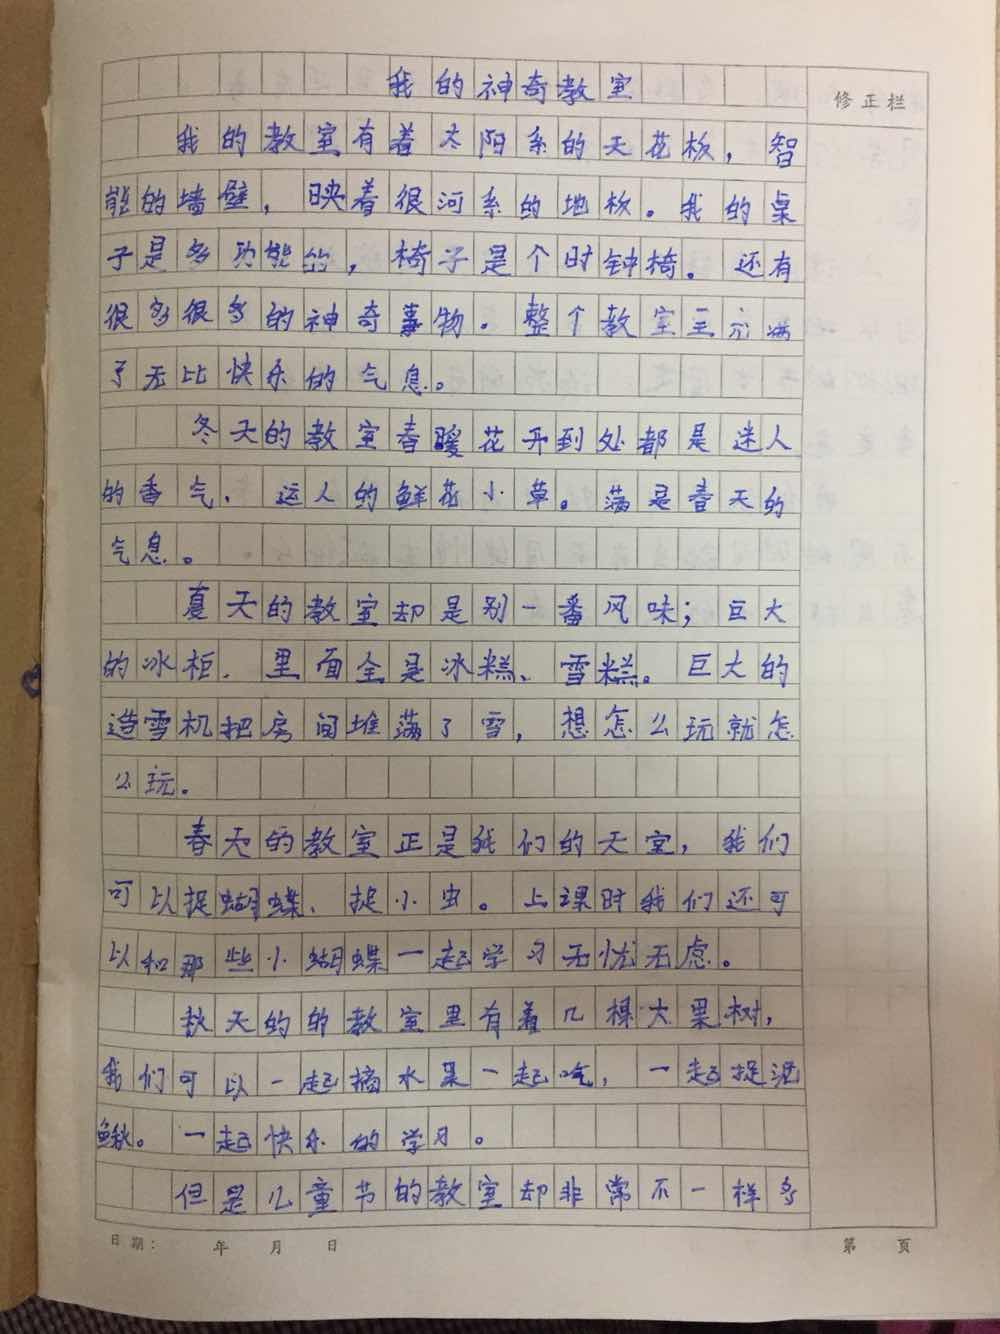 我的神奇教室
修正栏
我的教室有着太阳系的天花板，智
能的墙壁，映着很河系的地板。我的桌
子是多功能的，椅子是个时钟椅。还有
很多很多的神奇事物。整个教室里满
了无比快乐的气息。
冬天的教室春暖花开到处都是迷人
的香气．运人的鲜花小草。荡是春天的
气息。
夏天的教室却是别一番风味；巨大
的冰柜．里面全是冰糕、雪糕。巨大的
造雪机把房间堆荡了雪，想怎么玩就怎
么玩。
春天的教室正是我们的天堂，我们
可以捉蝴蝶、捉小虫。上课时我们还可
以和那些小蝴蝶一起学习无忧无虑。
秋天的的教室里有着几棵大果树，
我们可以一起摘水果一起吃，一起捉泥
鳅。一起快乐的学习。
但是儿童节的教室却非常不一样多
日期： 年 月 日
第 页